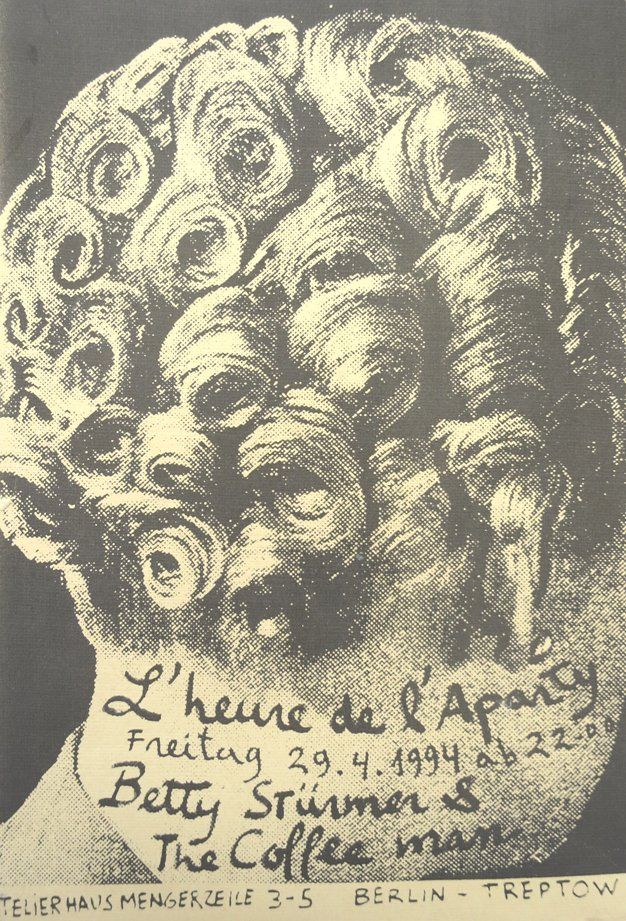 L'heure de l'Aparty
Freitag 29.4.1994 ab 22-00
Betty Stürmer &
The Coffee man
TELIERHAUS MENGERZEILE 3-5 BERLIN - TREPTOW